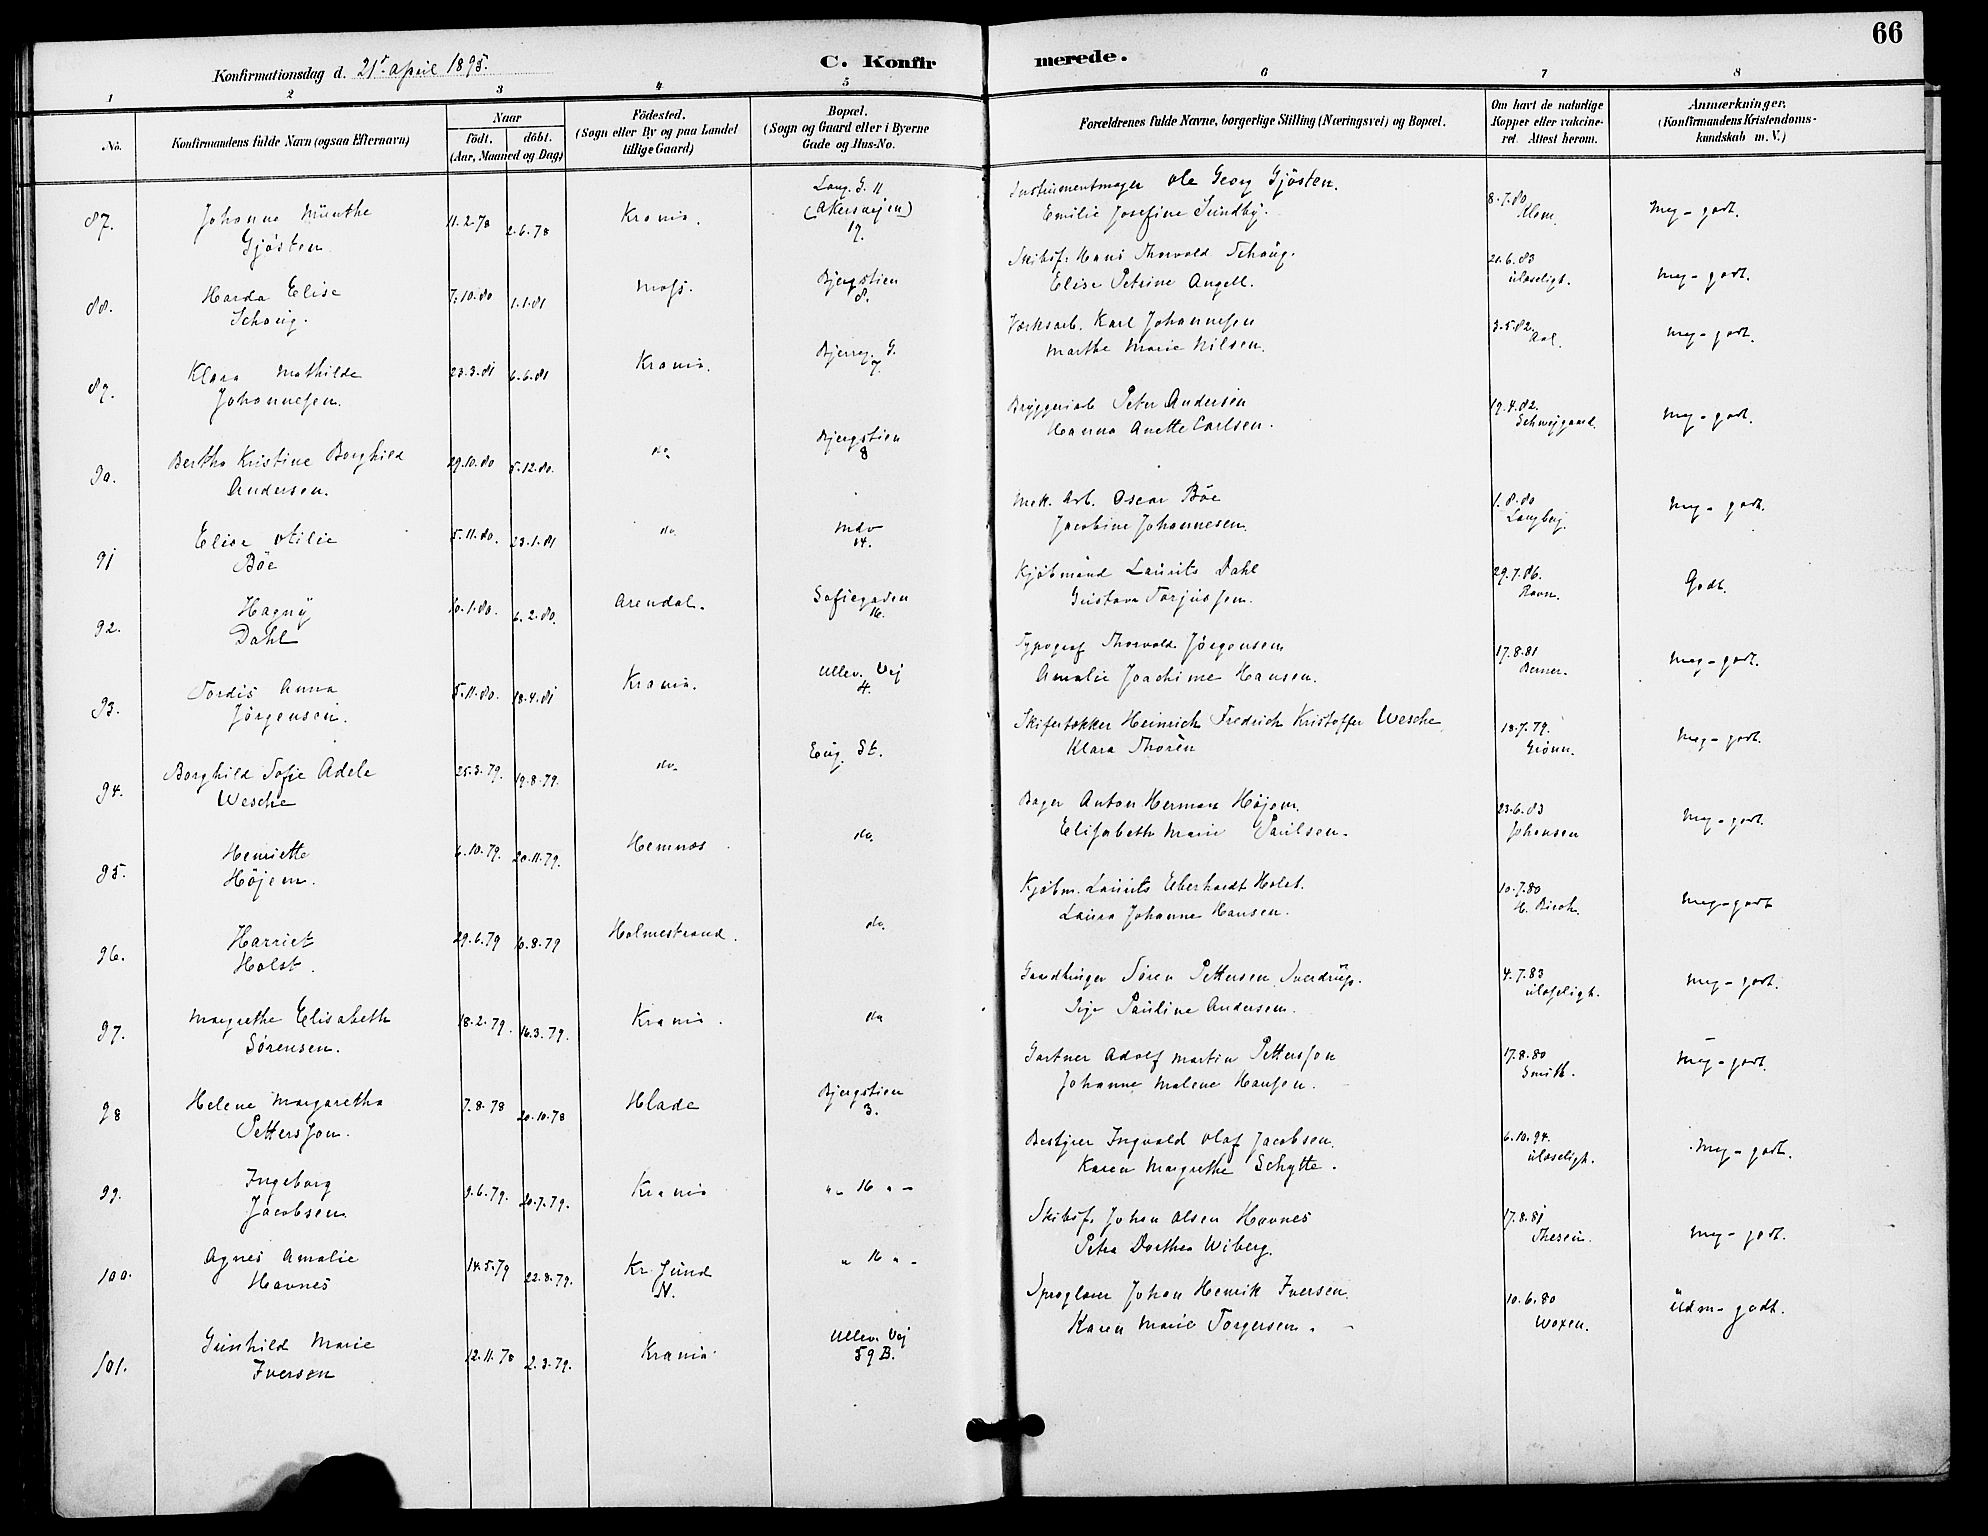 66
Konfirmationsdag d. 21' april 1895.
C. Konfirmerede.
1 2 3 4 5 6 7 8
No.
Konfirmandens fulde Navn (ogsaa Efternavn)
Naar
födt. döbt.
(Aar, Maaned og Dag)
Födested.
(Sogn eller By og paa Landet
tillige Gaard)
Bopæl.
(Sogn og Gaard eller i Byerne
Gade og Hus-No.
Forældrenes fulde Navne, borgerlige Stilling (Næringsvei) og Bopæl.
Om havt de naturlige
Kopper eller vakcine-
ret. Attest herom.
Anmærkninger.
(Konfirmandens Kristendoms-
kundskab m. V.)
87. Johanna Münthe
Gjösten
11.2.78 2.6.78 Krania. Lang. G. 11
(Akersvejen)
17.
Instrumentmager Ole Georg Gjösten.
Emilie Josefine Sundby.
8.7.80
Klem.
Meg-godt.
88. Harda Elise
Schoug.
7.10.80 1.1.81 Moss. Bjergstien
8.
Skibsf. Hans Thorvald Schoug.
Elise Petrine Angell.
21.6.83
ulæseligt.
Meg-godt.
89. Klara Mathilde
Johannesen.
23.3.81 6.6.81 Krania. Bjerreg. G.
7.
Værksarb. Karl Johannesen
Marthe Marie Nilsen.
3.5.82.
Aal.
Meg-godt.
90. Bertha Kristine Borghild
Andersen.
29.10.80 5.12.80. do. Bjergstien
8
Bryggeriarb Peter Andersen
Hanna Anette Carlsen.
19.4.82.
Schweigaard.
Meg-godt.
91 Elise Otilie
Böe
5.11.80. 23.1.81 do. Mdv
14.
Mek. Arb. Oscar Böe
Jacobine Johannesen.
1.8.80
Langberg.
Meg-godt.
92. Hagny
Dahl
10.1.80. 6.2.80. Arendal. Sofiegaden
16.
Kjöbmand Laurits Dahl
Gustava Torjussen.
29.7.86.
Ravn.
Godt.
93. Tordis Anna
Jörgensen.
5.11.80. 18.4.81 Krania. Ullev. Vej
4.
Typograf Thorvald Jörgensen
Amalie Joachime Hansen.
17.8.81
Berner.
Meg-godt.
94. Borghild Sofie Adele
Wesche
25.3.79. 19.8.79. do. Eug. St.
Skifertækker Heinrich Fredrich Kristoffer Wesche
Klara Thorén
18.7.79.
Grönn.
Meg-godt.
95. Henriette
Höjem.
6.10.79. 20.11.79. Hemnæs do.
Bager Anton Herman Höjem.
Elisabeth Marie Paulsen.
23.6.83
Johansen
Meg-godt.
96. Harriet
Holst.
29.6.79 10.8.79 Holmestrand. do.
Kjöbm. Laurits Eberhardt Holst.
Laura Johanne Hansen.
10.7.80
H. Birch.
Meg-godt
97. Margrethe Elisabeth
Sörensen.
18.2.79. 16.3.79. Krania. do
Sören Pettersen Sverdrup.
Pauline Andersen.
4.7.83
ulæseligt.
Meg-godt.
98 Helene Margaretha
Pettersson.
7.8.78 20.10.78 Hlade Bjergstien
3.
Gartner Adolf Martin Pettersson
Johanne Malene Hansen.
17.8.80
Smith.
Meg-godt.
99. Ingeborg
Jacobsen.
9.6.79. 20.7.79. Krania " " 16 " -
Bestyrer Ingvald Olaf Jacobsen.
Karen Margrethe Schytte.
6.10.94.
ulæseligt.
Meg-godt.
100. Agnes Amalie
Havnes
14.5.79 22.8.79. Kr. Sund
N.
" 16 " -
Skibsf. Johan Olsen Havnes
Petra Dorthea Wiberg.
17.8.81
Thesen.
Meg-godt.
101. Gunhild Marie
Iversen
12.11.78 2.3.79. Krania Ullev. Vej
59 B.
Sproglærer Johan Henrik Iversen.
Karen Marie Torgersen.
10.6.80
Woxen.
Udm-godt.